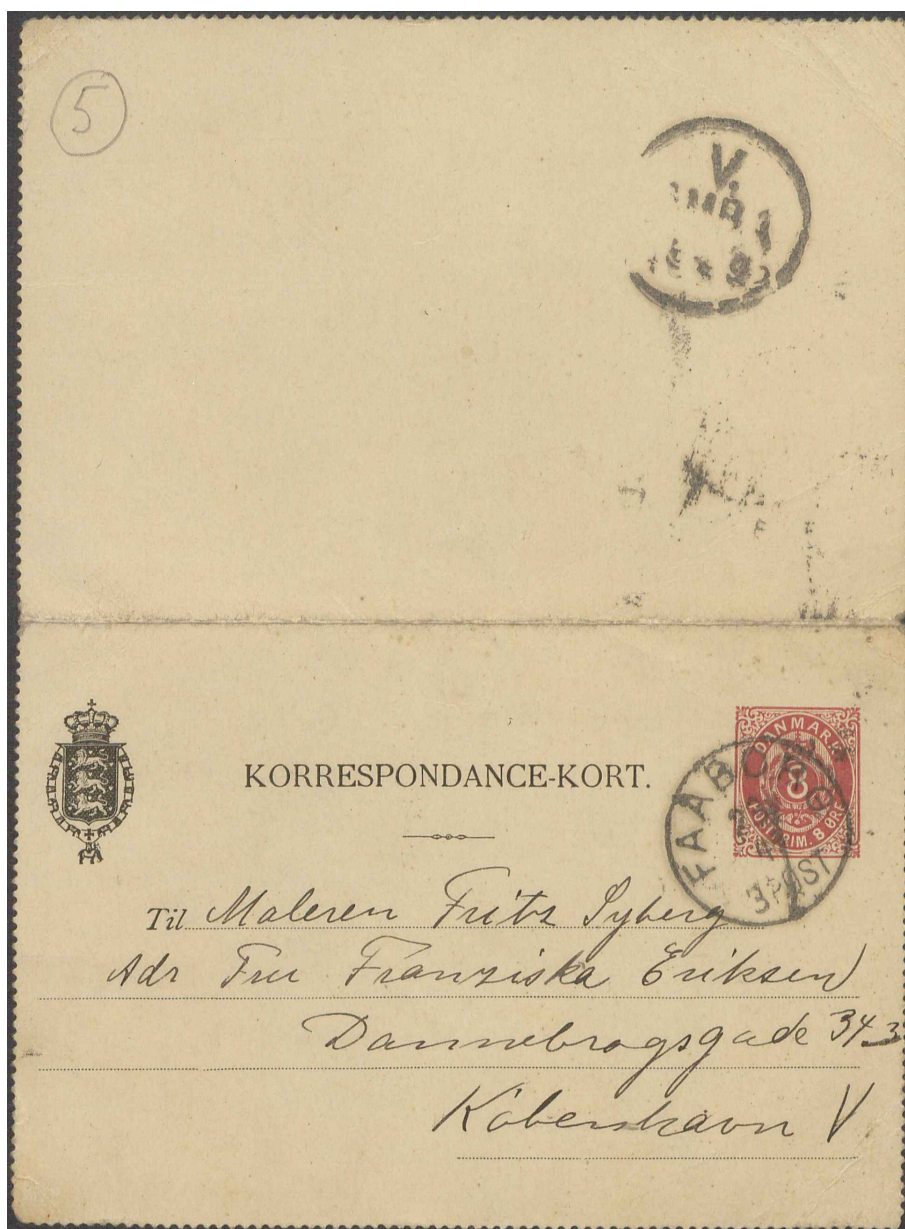 5
V.
KORRESPONDANCE-KORT.
DANMARK
8
POSTFRIM. 8 ØRE
FAABORG
3 POST
Til Maleren Fritz Syberg
Adr Fru Franziska Eriksen
Dannebrogsgade 34 3
København V